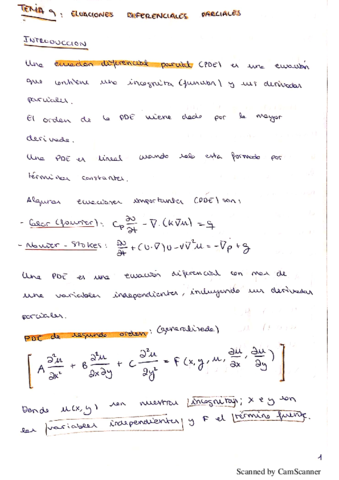 TEMA 9: ECUACIONES DIFERENCIALES PARCIALES
INTRODUCCION
Una ecuacion diferencial parcial (PDE) es una ecuación
que contiene una incognita (funcion) y sus derivadas
parciales.
El orden de la PDE viene dado por la mayor
derivada.
Una PDE es lineal cuando solo esta formada por
términos constantes.
Algunas ecuaciones importantes (PDE) son:
- Calor (fourier): Cp ∂u/∂t - ∇·(k∇u) = g
- Navier-Stokes: ∂u/∂t + (u·∇)u - ν∇²u = -∇p + g
Una PDE es una ecuación diferencial con mas de
una variables independientes, incluyendo sus derivadas
parciales.
PDE de segundo orden: (generalizada)
[ A ∂²u/∂x² + B ∂²u/∂x∂y + C ∂²u/∂y² = F(x, y, u, ∂u/∂x, ∂u/∂y) ]
Donde u(x,y) son nuestras incognitas; x e y son
las variables independientes y F el término fuente.
1
Scanned by CamScanner